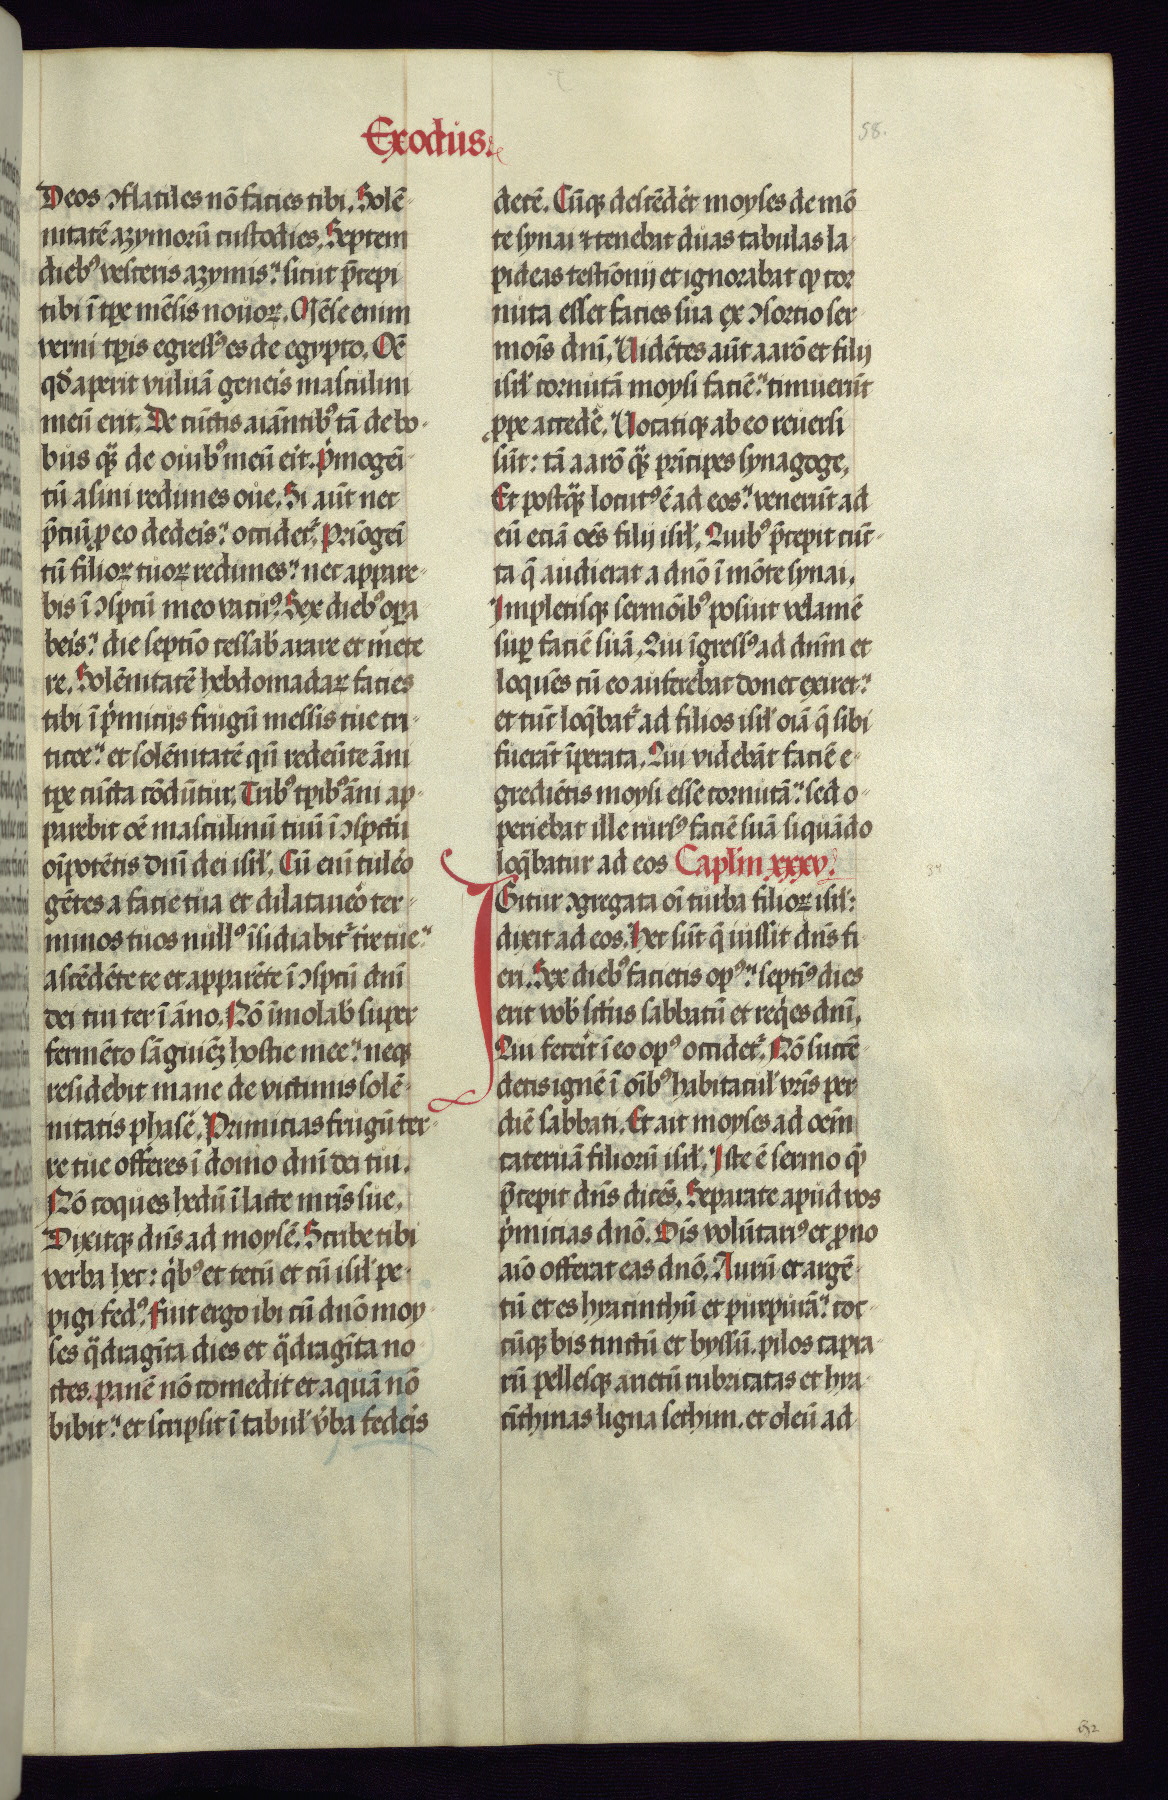 Exodus
58.
Deos ↄflatiles nō facies tibi. Solē-
nitatē azymorū custodies. Septem
diebꝰ vesceris azymis: sicut p̄cepi
tibi ī tp̄e mēsis nouoꝝ. Mēse enim
verni tp̄is egressꝰ es de egypto. Oē
qd̓ aperit vuluā gen̄eis masculini
meū erit. De cūctis aīantibꝰ tā de bo-
bus qᷓ̄ de ouibꝰ meū er̄it. p̓mogeī-
tū asini redimes oue. Si aūt nec
p̄ciū ꝓ eo dedeis̄: occidet᷑. Prīogeī
tū filioꝝ tuoꝝ redimes: nec appare-
bis ī ↄspcū meo vacuꝰ. Sex diebꝰ oꝑa
beis̄: die septīo cessab̄ arare et mete
re. Solēnitatē hebdomadaꝝ facies
tibi ī p̓micijs frugū messis tue tri-
ticee: et solēnitatē qn̄ redeūte āni
tp̄e cūcta cōdūtur. Tribꝰ tp̄ibꝰ āni ap-
parebit oē masculinū tuū ī ↄspctū
oīpotētis dnī dei isrl̄. Cū enī tulēo
gētes a facie tua et dilatauēo ter-
minos tuos nullꝰ īsidiabit᷑ tr̄e tue:
ascēdēte te et apparēte ī ↄspcū dnī
dei tui ter ī āno. Nō īmolab̄ super
fermēto sāguīeꝫ hostie mee: neqꝫ
residebit mane de victimis solē-
nitatis phasē. Primicias frugū ter-
re tue offeres ī domo dnī dei tui.
Nō coques hedū ī lacte mr̄is sue.
Dixitqꝫ dn̄s ad moysē. Scribe tibi
verba hec: q̓bꝰ et tecū et cū isrl̄ pe-
pigi fedꝰ. Fuit ergo ibi cū dnō moy-
ses qᷓdragīta dies et qᷓdragīta no
ctes. panē nō comedit et aquā nō
bibit: et scripsit ī tabul̄ v̓ba fedeis̄
decē. Cūqꝫ descēdēt moyses de mō
te synai ⁊ tenebat duas tabulas la
pideas testiōnij et ignorabat qꝫ cor
nuta esset facies sua ex ↄsorcio ser
mois̄ dnī. Vidētes aūt aarō et filij
isrl̄ cornutā moysi faciē: timuerūt
ꝓpe accedē̓. Vocatiqꝫ ab eo reuersi
sūt: tā aarō qᷓ̄ prīcipes synagoge.
Et postqᷓ̄ locutꝰ ē ad eos: venerūt ad
eū eciā oēs filij isrl̄. Quibꝰ p̄cepit cūc-
ta q̄ audierat a dnō ī mōte synai.
Impletisqꝫ sermōibꝰ posuit velamē
suꝑ faciē suā. Qui īgressꝰ ad dnm̄ et
loquēs cū eo auferebat donec exiret:
et tūc loq̄bat᷑ ad filios isrl̄ oīa q̄ sibi
fuerāt īperata. Qui videbāt faciē e-
grediētis moysi esse cornutā: sed o-
periebat ille rursꝰ faciē suā siquādo
loq̄batur ad eos Caplm̄ xxxv.
IGitur ↄgregata oī turba filioꝝ isrl̄:
dixit ad eos. Hec sūt q̄ iussit dn̄s fi
eri. Sex diebꝰ facietis opꝰ: septīꝰ dies
erit vob̄ sctūs sabbatū et req̓es dnī.
Qui feceīt ī eo opꝰ occidet᷑. Nō succē-
detis ignē ī oībꝰ habitacul̄ vr̄is per
diē sabbati. Et ait moyses ad oem̄
cateruā filiorū isrl̄. Iste ē sermo qē
p̄cepit dn̄s dicēs. Separate apud vos
p̓micias dnō. Oīs volūtariꝰ et ꝓno
aīo offerat eas dnō. Aurū et argē-
tū et es hyacinthū et purpurā: coc-
cūqꝫ bis tinctū et byssū. pilos capra-
rū pellesqꝫ arietū rubricatas et hya-
cīthinas ligna sethim. et oleū ad